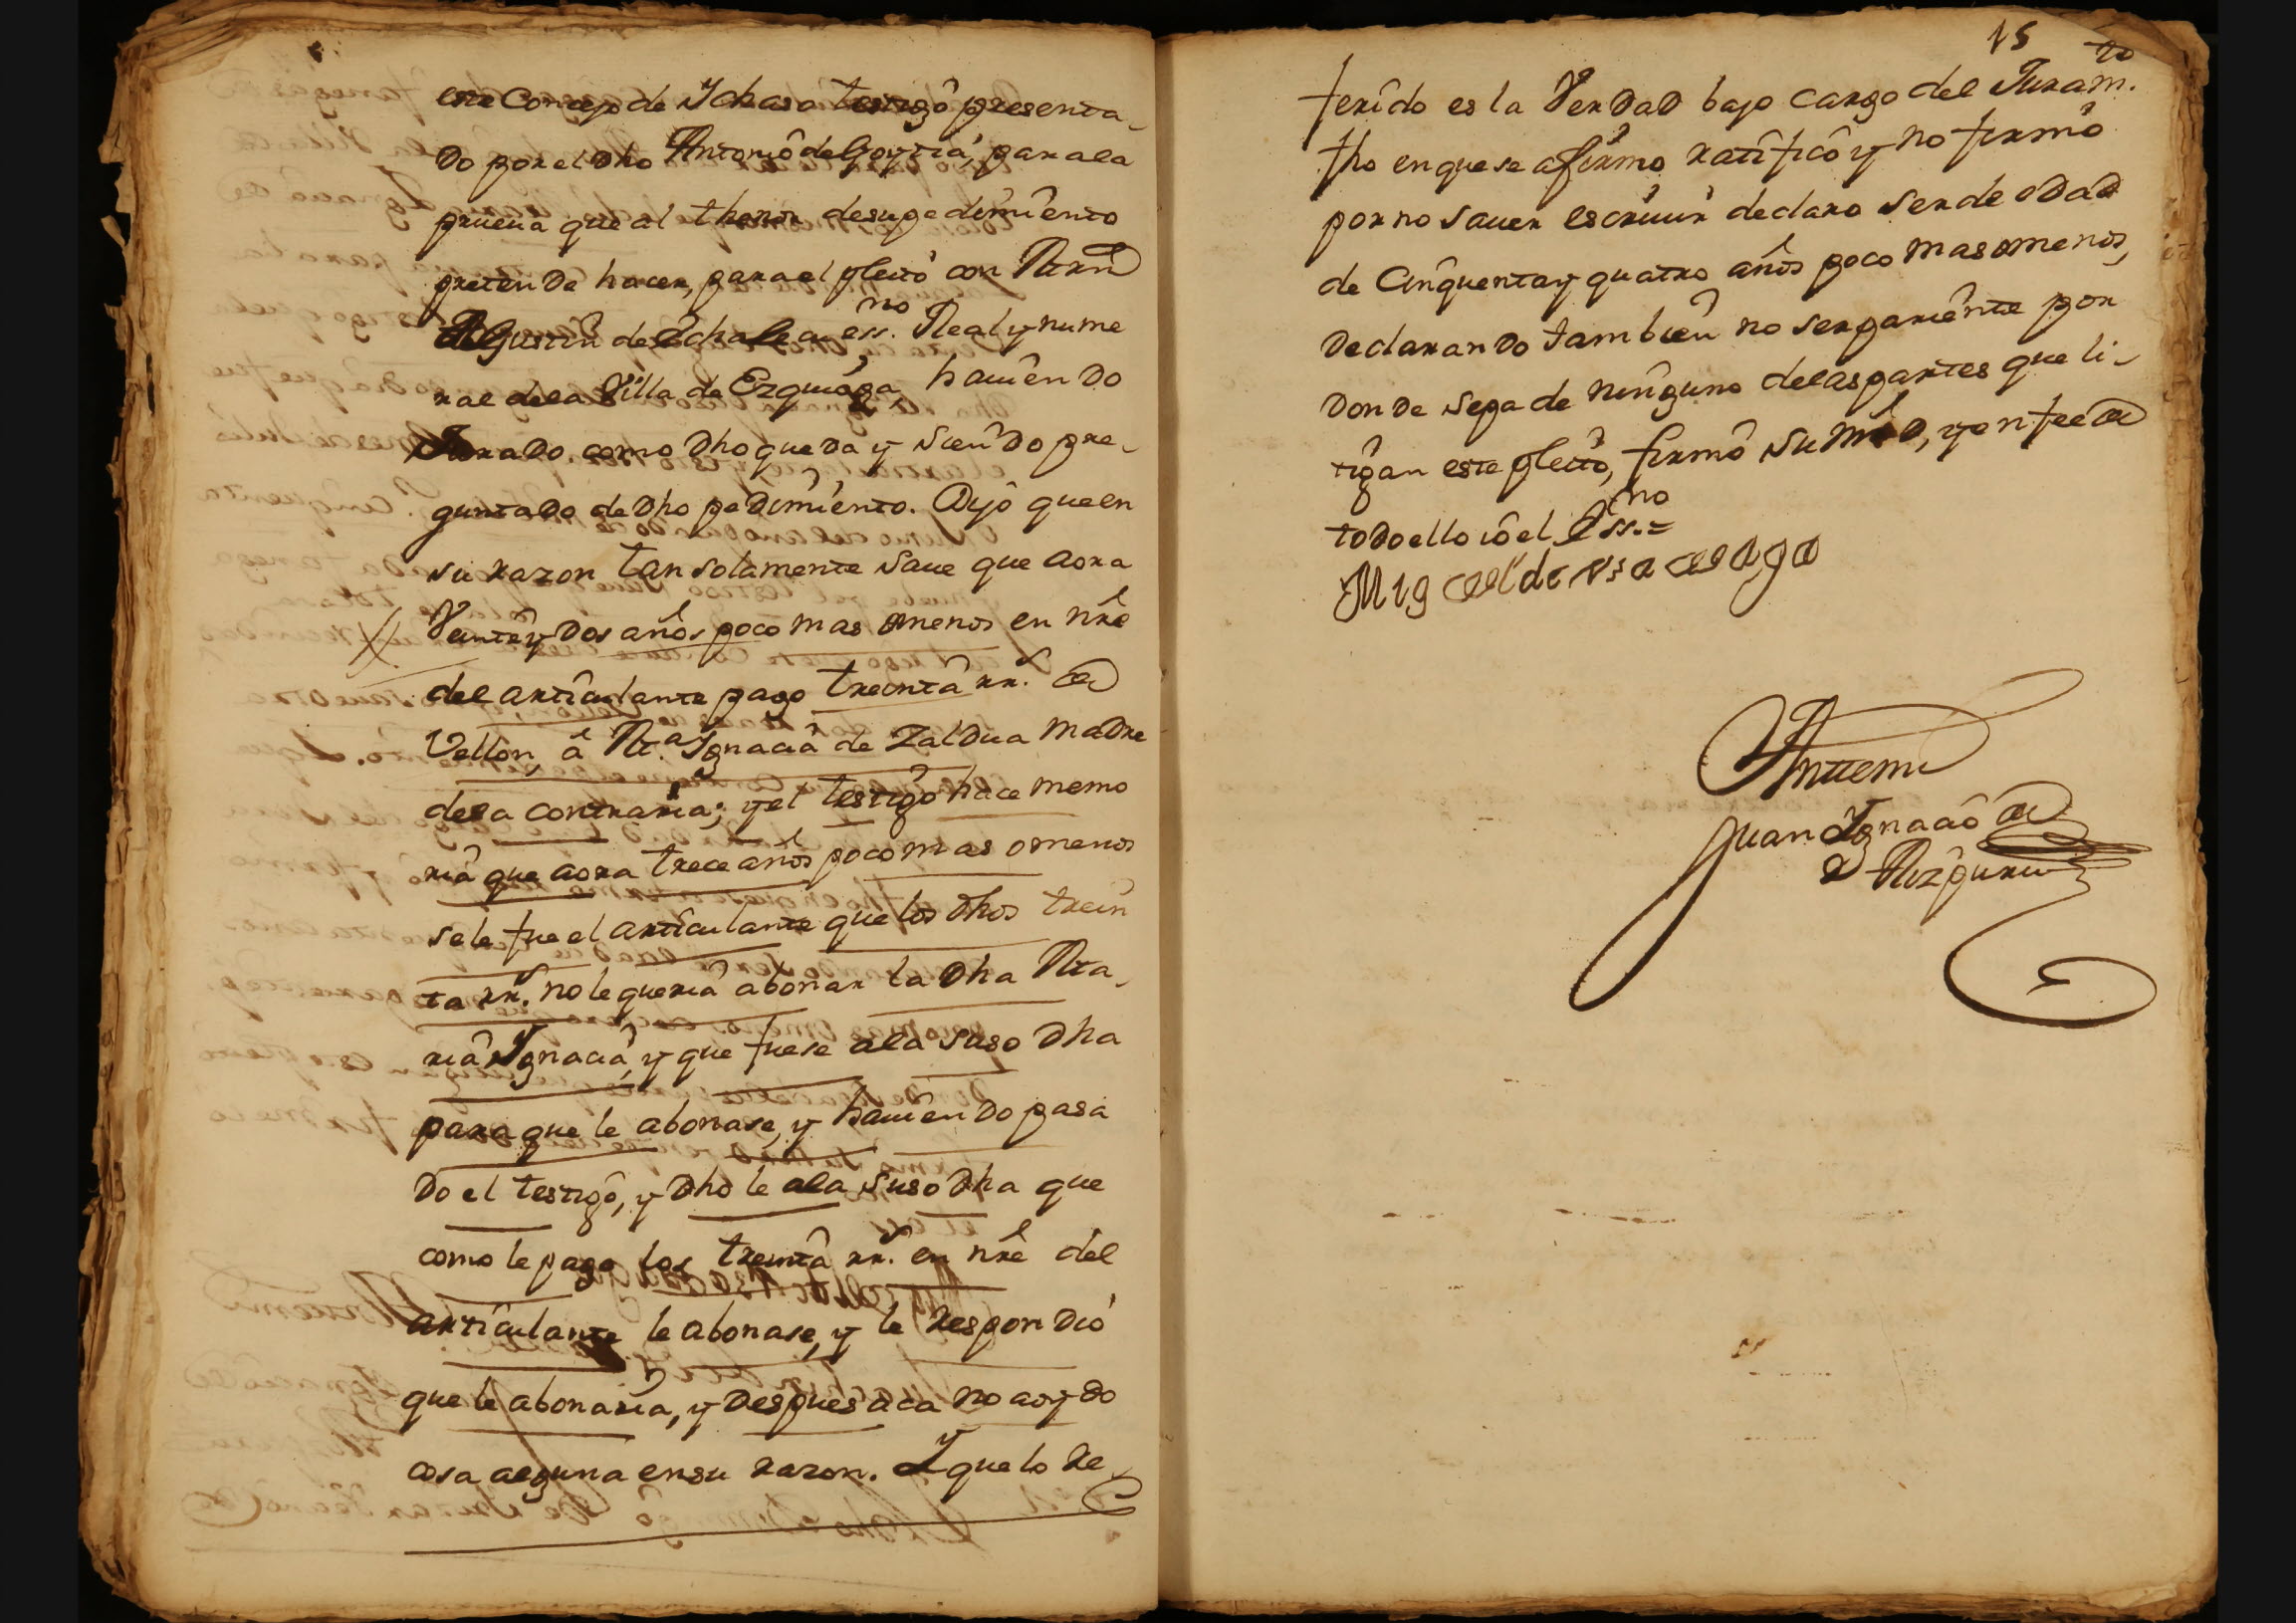 este Concejo de Ychaso testigo presenta-
do por el dho Antonio de Goytia, para la
prueua que al thenor de su pedimiento
pretende hacer, para el pleito con Mrn
Agustin de Echalecu ess.no Real y nume
ral de la Villa de Ezquioga, hauiendo
Jurado como dho queda y siendo pre-
guntado de dho pedimiento. Dijo que en
su razon tan solamente saue que aora
Veinte y dos años poco mas omenos en nre
del articulante pago treinta rr.s de
Vellon, â Ma. Ygnacia de Zaldua madre
de la contraria; y el testigo hace memo
ria que aora trece años poco mas omenos
sele fue el articulante que los dhos trein
ta rr.s no le queria abonar la dha Ma-
ria Ygnacia, y que fuese ala suso dha
para que le abonase, y hauiendo pasa
do el testigo, y dho le ala suso dha que
como le pago los treinta rr.s en nre del
articulante le abonase, y le respondio
que le abonaria, y despues aca no aoydo
cosa alguna en su razon. Y que lo Re-
15
ferido es la Verdad bajo cargo del Juram.to
fho en que se afirmo ratifico y no firmo
por no sauer escriuir declaro ser de edad
de Cinquenta y quatro años poco mas omenos,
declarando tambien no ser pariente por
donde sepa de ninguno delas partes que li-
tigan este pleito, firmô su mrd, y en fee de
todo ello io el Ess.no =
Migael de
Anttemi
Juan Ygnacio de
Aizpuru